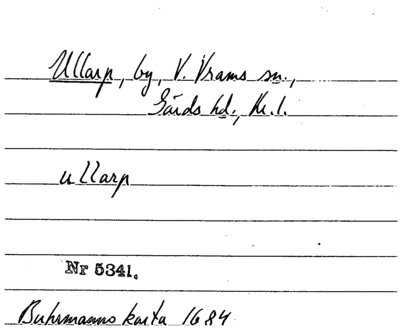 Ullarp, by, V. Vrams sn.,
Gärds hd., Kr. l.
ullarp
Nr 5341.
Buhrmanns karta 1684